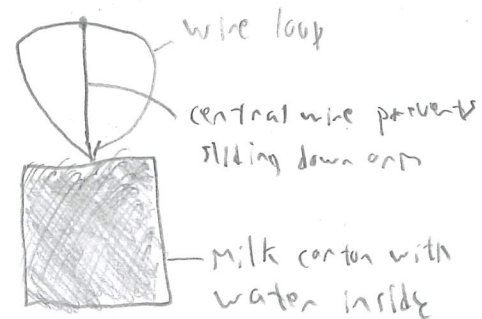 wire loop
central wire prevents
sliding down arm
Milk carton with
water inside